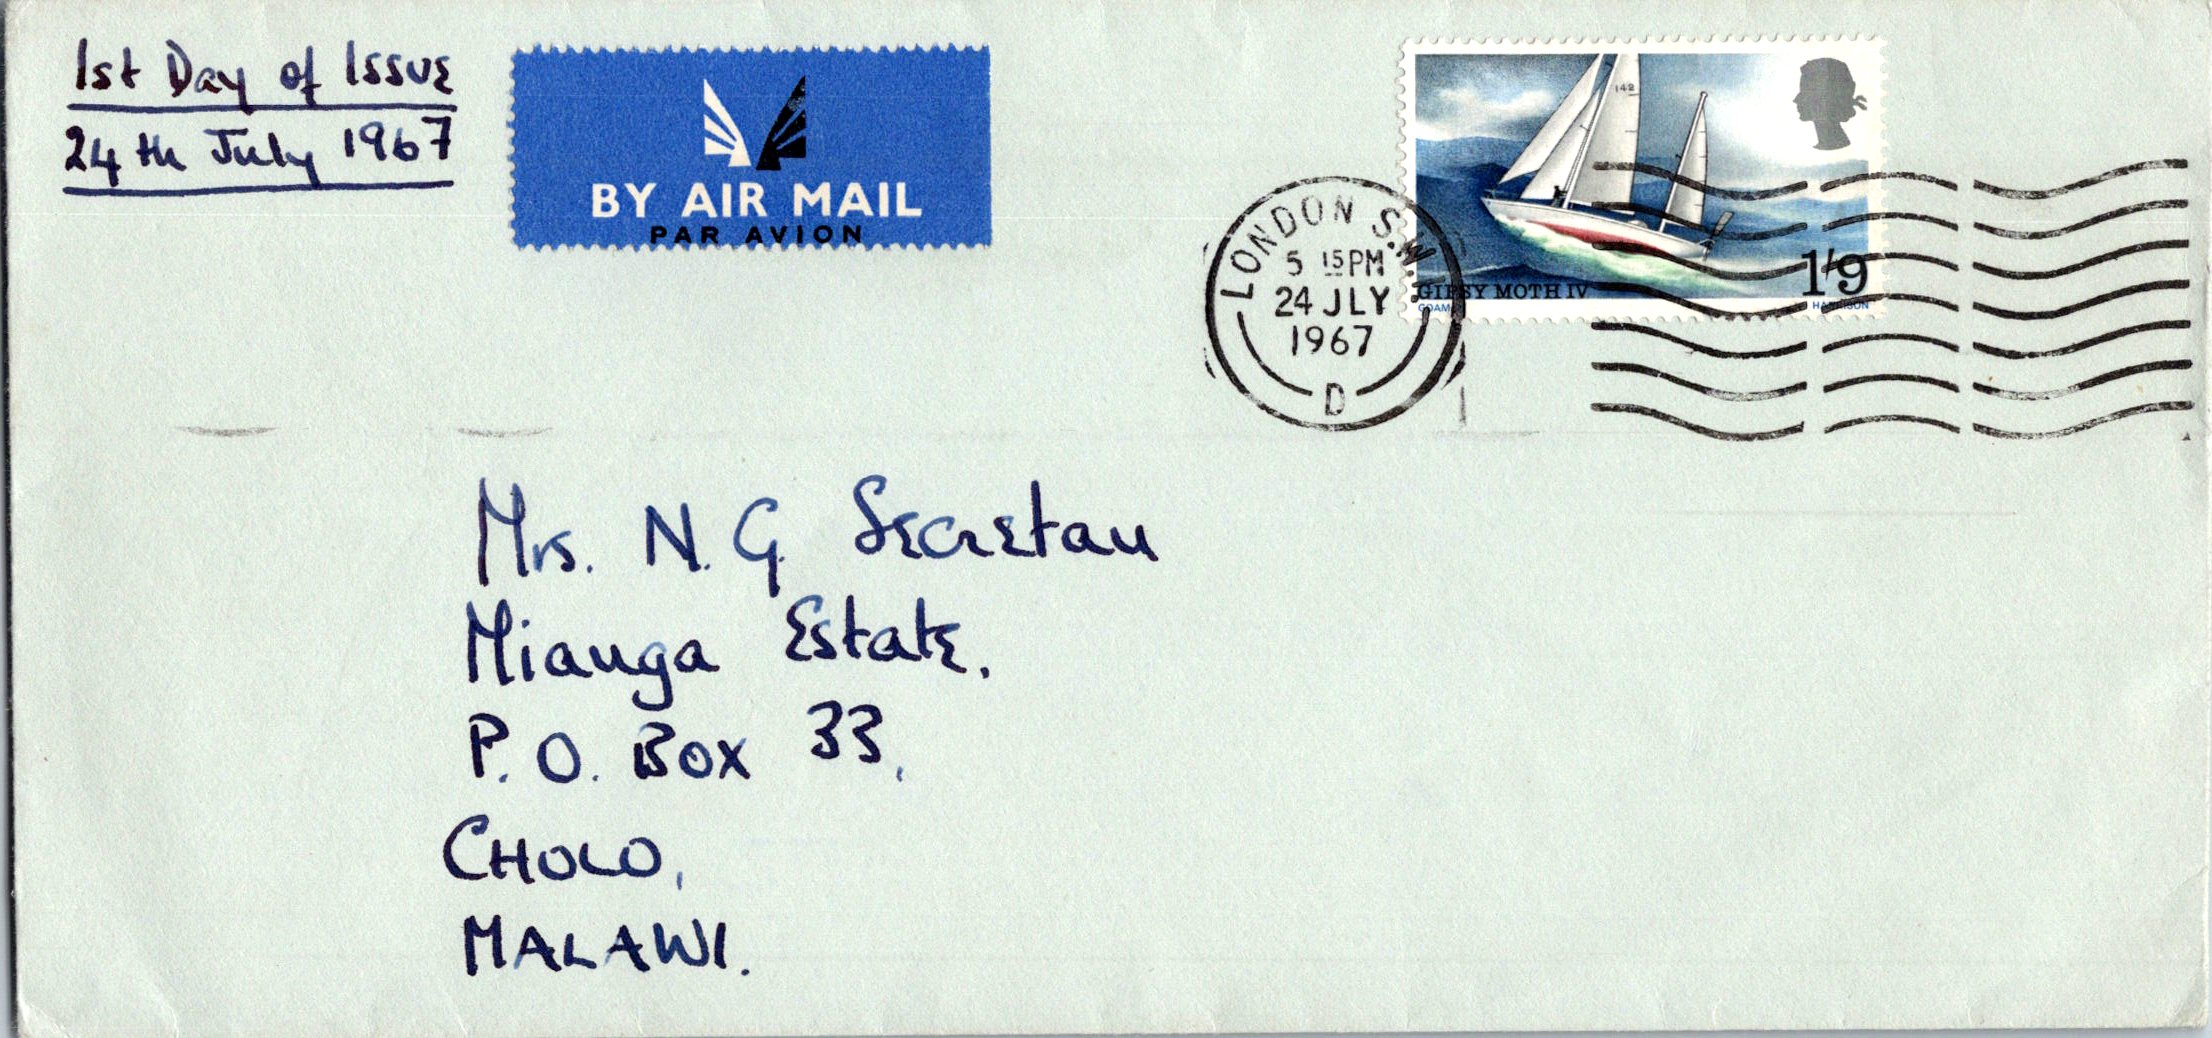 1st Day of Issue
24th July 1967
BY AIR MAIL
PAR AVION
142
GIPSY MOTH IV
1/9
HARRISON
LONDON S.W.1
5 15PM
24 JLY
1967
D
Mrs. N. G. Secretan
Mianga Estate.
P. O. Box 33,
CHOLO,
MALAWI.